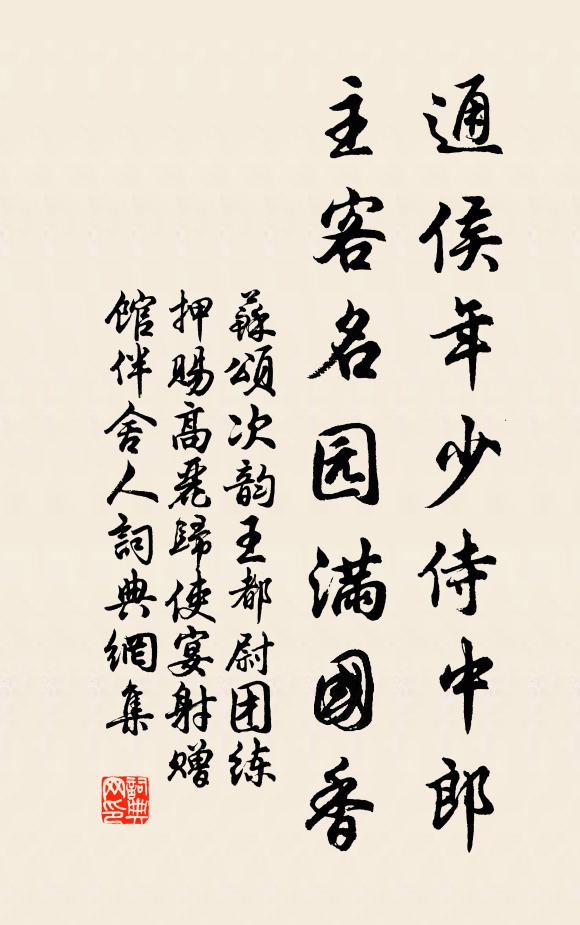 通侯年少侍中郎
主客名园滿國香
蘇頌次韵王都尉团练
押賜高麗歸使宴射赠
馆伴舍人詞典網集
詞典网印